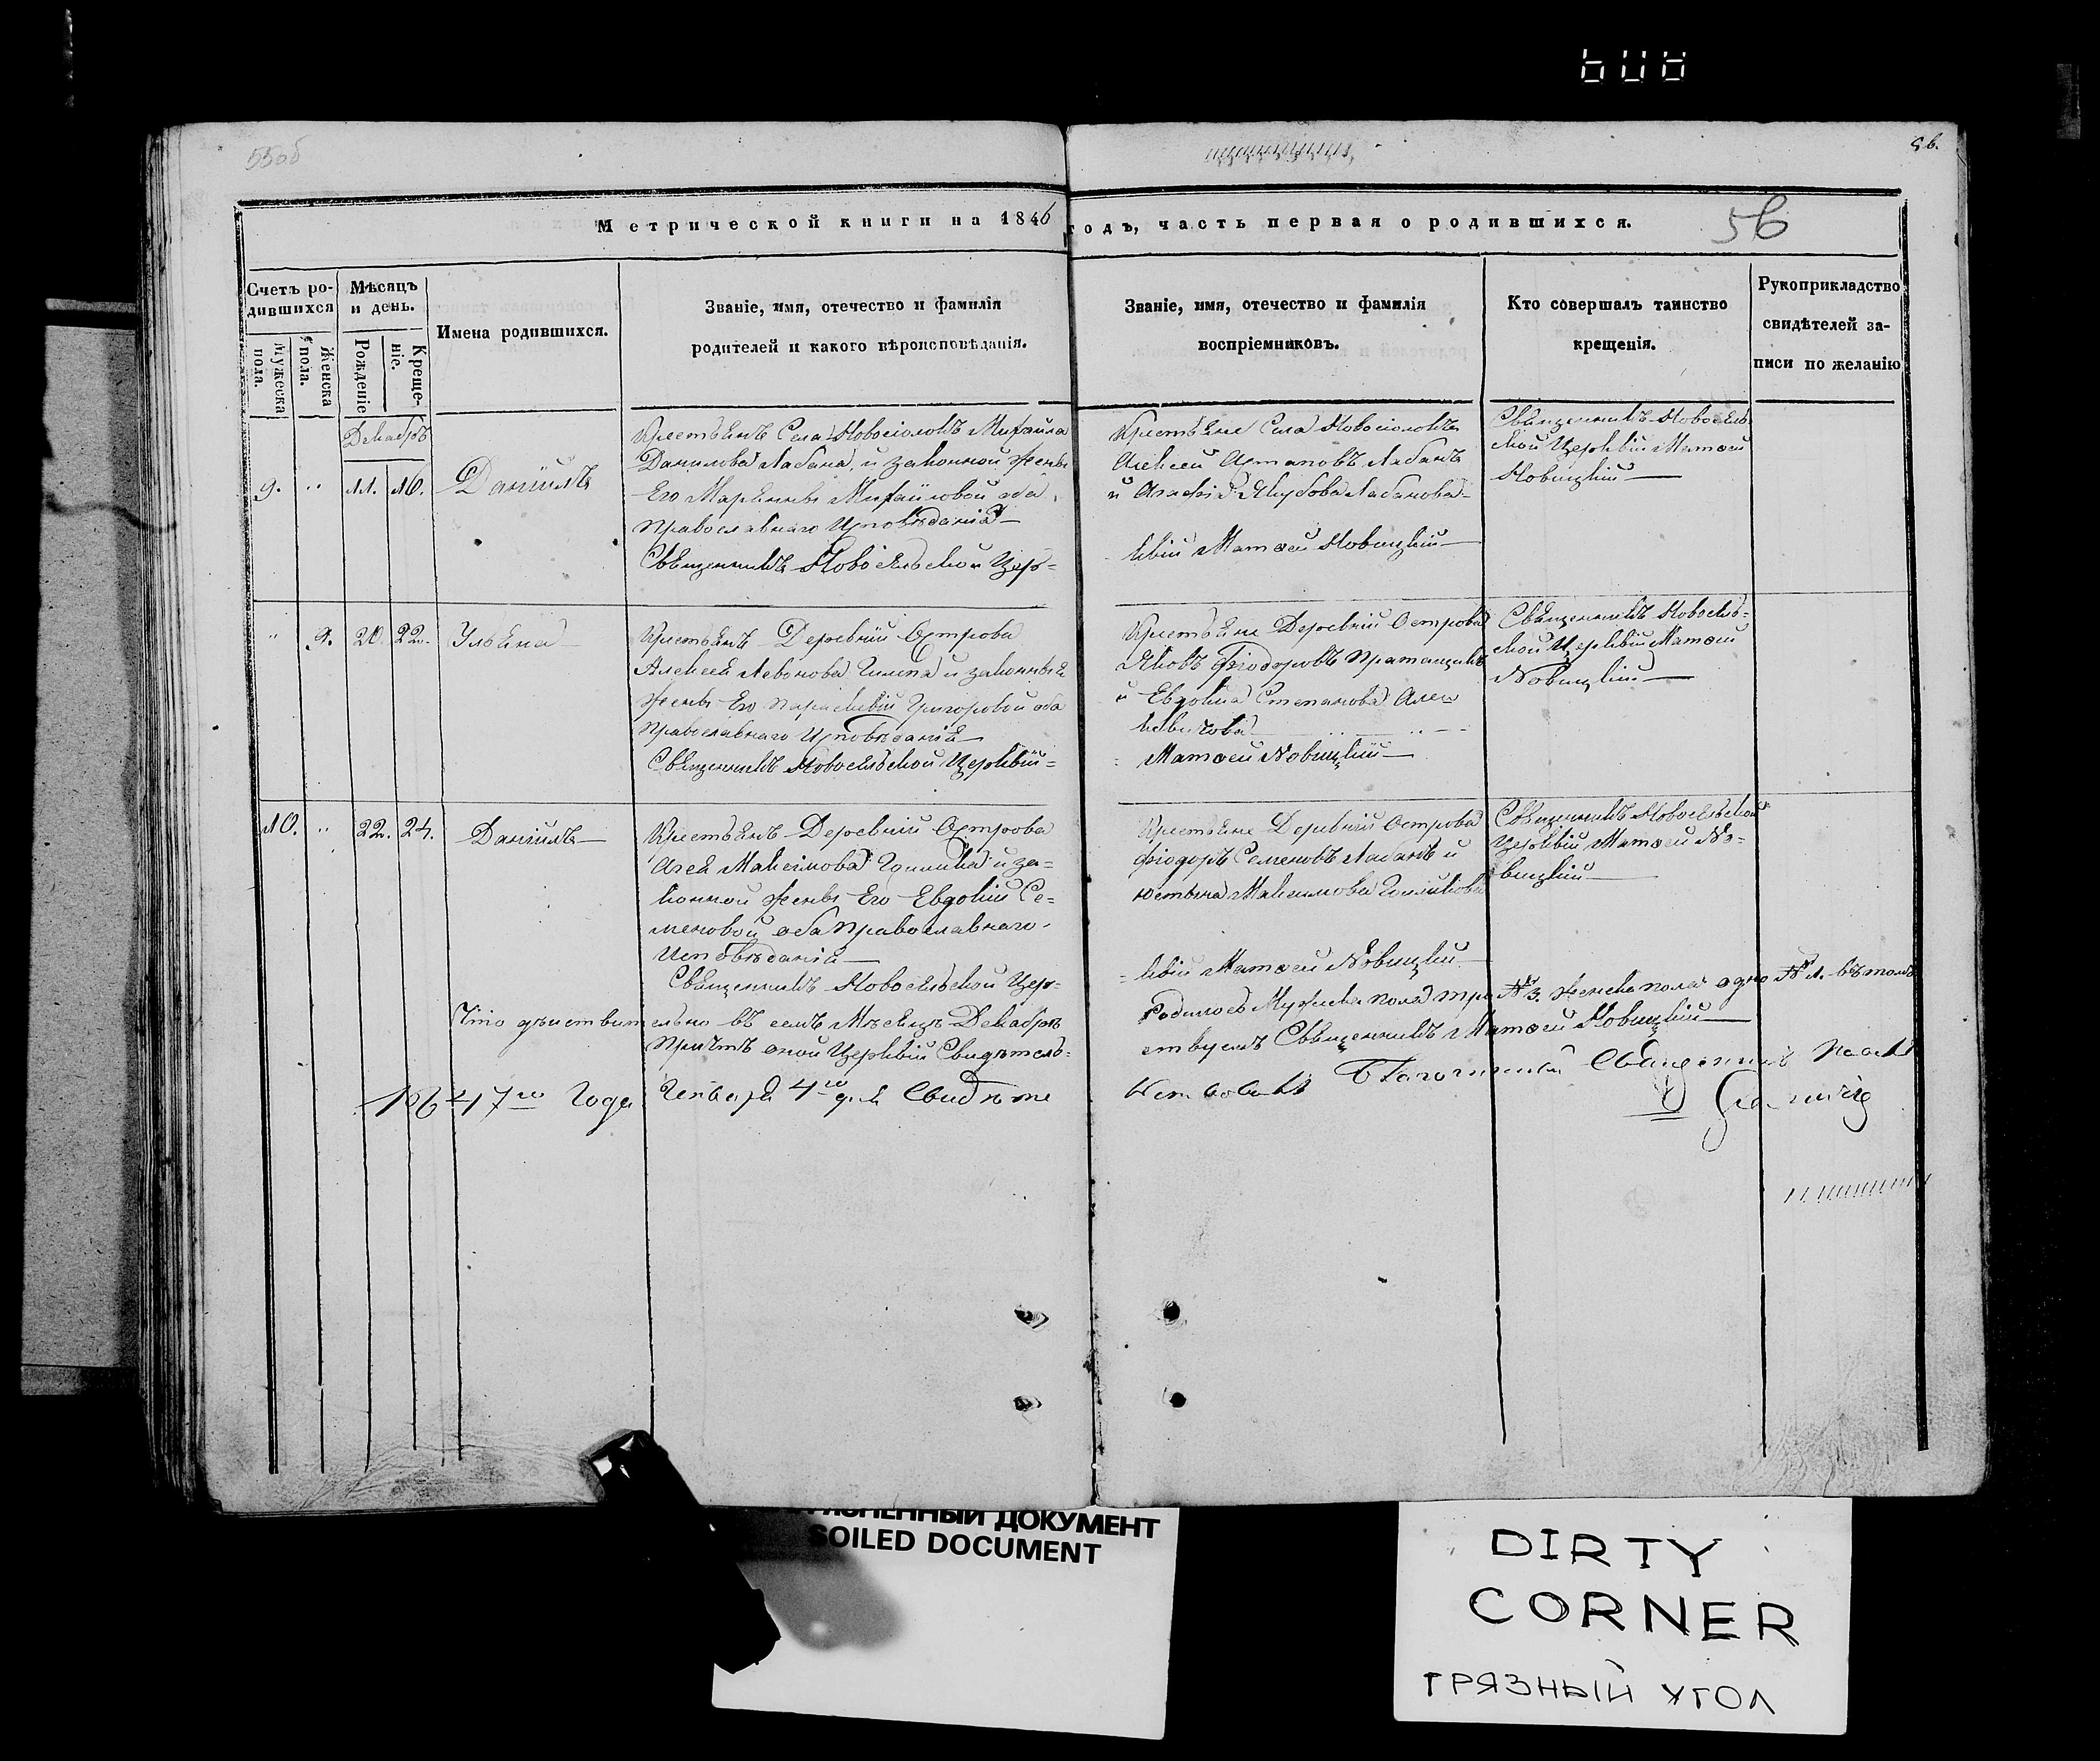 55об
56.
Метрической книги на 1846 годъ, часть первая о родившихся.
56
Счетъ ро-
дившихся
Мужеска
пола.
Женска
пола.
Мѣсяцъ
и день.
Рожденіе
Креще-
ніе.
Имена родившихся.
Званіе, имя, отечество и фамилія
родителей и какого вѣроисповѣданія.
Званіе, имя, отечество и фамилія
воспріемниковъ.
Кто совершалъ таинство
крещенія.
Рукоприкладство
свидѣтелей за-
писи по желанію
Декабрь
9. " 11. 16. Даніилъ
Крестьянъ Села Новоселокъ Михаила
Данилова Лабана, и законной жены
Его Марьянны Михайловой оба
Православнаго Исповѣданія
Священникъ Новосельской Цер-
Крестьяне Села Новоселокъ
Алексей Астаповъ Лабанъ
и Агафія Якубова Лабанова
квіи Матѳей Новицкій
Священникъ Новосель
ской Церквіи Матѳей
Новицкій
" 9. 20. 22. Ульяна
Крестьянъ Деревніи Острова
Алексея Левонова и законныя
жены Его Параскевіи Григоровой оба
Православнаго Исповѣданія
Священникъ Новосельской Церквіи
Крестьяне Деревніи Острова
Яковъ Ѳіодоровъ
и Евдокія Степанова Але
Матѳей Новицкій
Священникъ Новосель-
ской Церквіи Матѳей
Новицкій
10. " 22. 24. Даніилъ
Крестьянъ Деревніи Острова
Максимова и за-
конной жены Его Евдокіи Се-
меновой оба Православнаго
Исповѣданія
Священникъ Новосельской Цер-
Крестьяне Деревніи Острова
Ѳіодоръ Семеновъ Лабанъ и
Юстына Максимова
квіи Матѳей Новицкій
Священникъ Новосельской
Церквіи Матѳей Но-
вицкій
Что дѣиствительно въ семъ Мѣсяцѣ Декабрѣ Родилось Мужеска пола три № 3. Женска пола одно № 1. въ томъ
Причтъ оной Церквіи Свидѣтель- ствуемъ Священникъ Матѳей Новицкій
1847го Года Генваря 4го дня Свидѣте Благочинный Священникъ
ЗАГРЯЗНЕННЫЙ ДОКУМЕНТ
SOILED DOCUMENT
DIRTY
CORNER
ГРЯЗНЫЙ УГОЛ